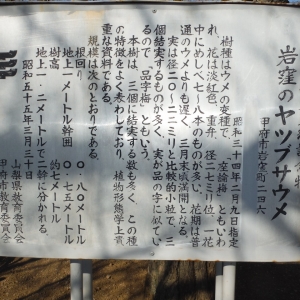 岩窪のヤツブサウメ
甲府市岩窪町二四六
昭和三十四年二月九日指定
樹種はウメの変種で、「座論梅」ともいわ
れ、花は淡紅色の重弁、径二十ミリ位、一花
中にめしべ七〜八本のものが多い。花期は普
通のウメよりも遅く、三月末満開となる。
実は径二〇・二ミリと比較的小粒で、三
個結実するものが多く、実が品の字に似てい
るので、品字梅ともいう。
本樹は、三個に結実する数も多く、この種
の特徴をよく表わしており、植物形態学上貴
重な資料である。
規模は次のとおりである。
根回り 〇・八〇メートル
地上一メートル幹囲 〇・七五メートル
樹高 約七メートル
地上一・二メートルで二幹に分かれる。
昭和五十五年三月 日
山梨県教育委員会
甲府市教育委員会